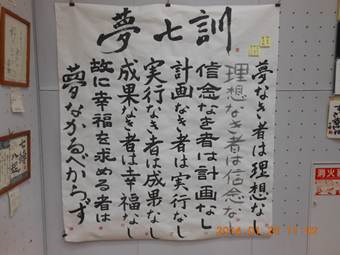 夢七訓
夢なき者は理想なし
理想なき者は信念なし
信念なき者は計画なし
計画なき者は実行なし
実行なき者は成果なし
成果なき者は幸福なし
故に幸福を求める者は
夢なかるべからず
消火